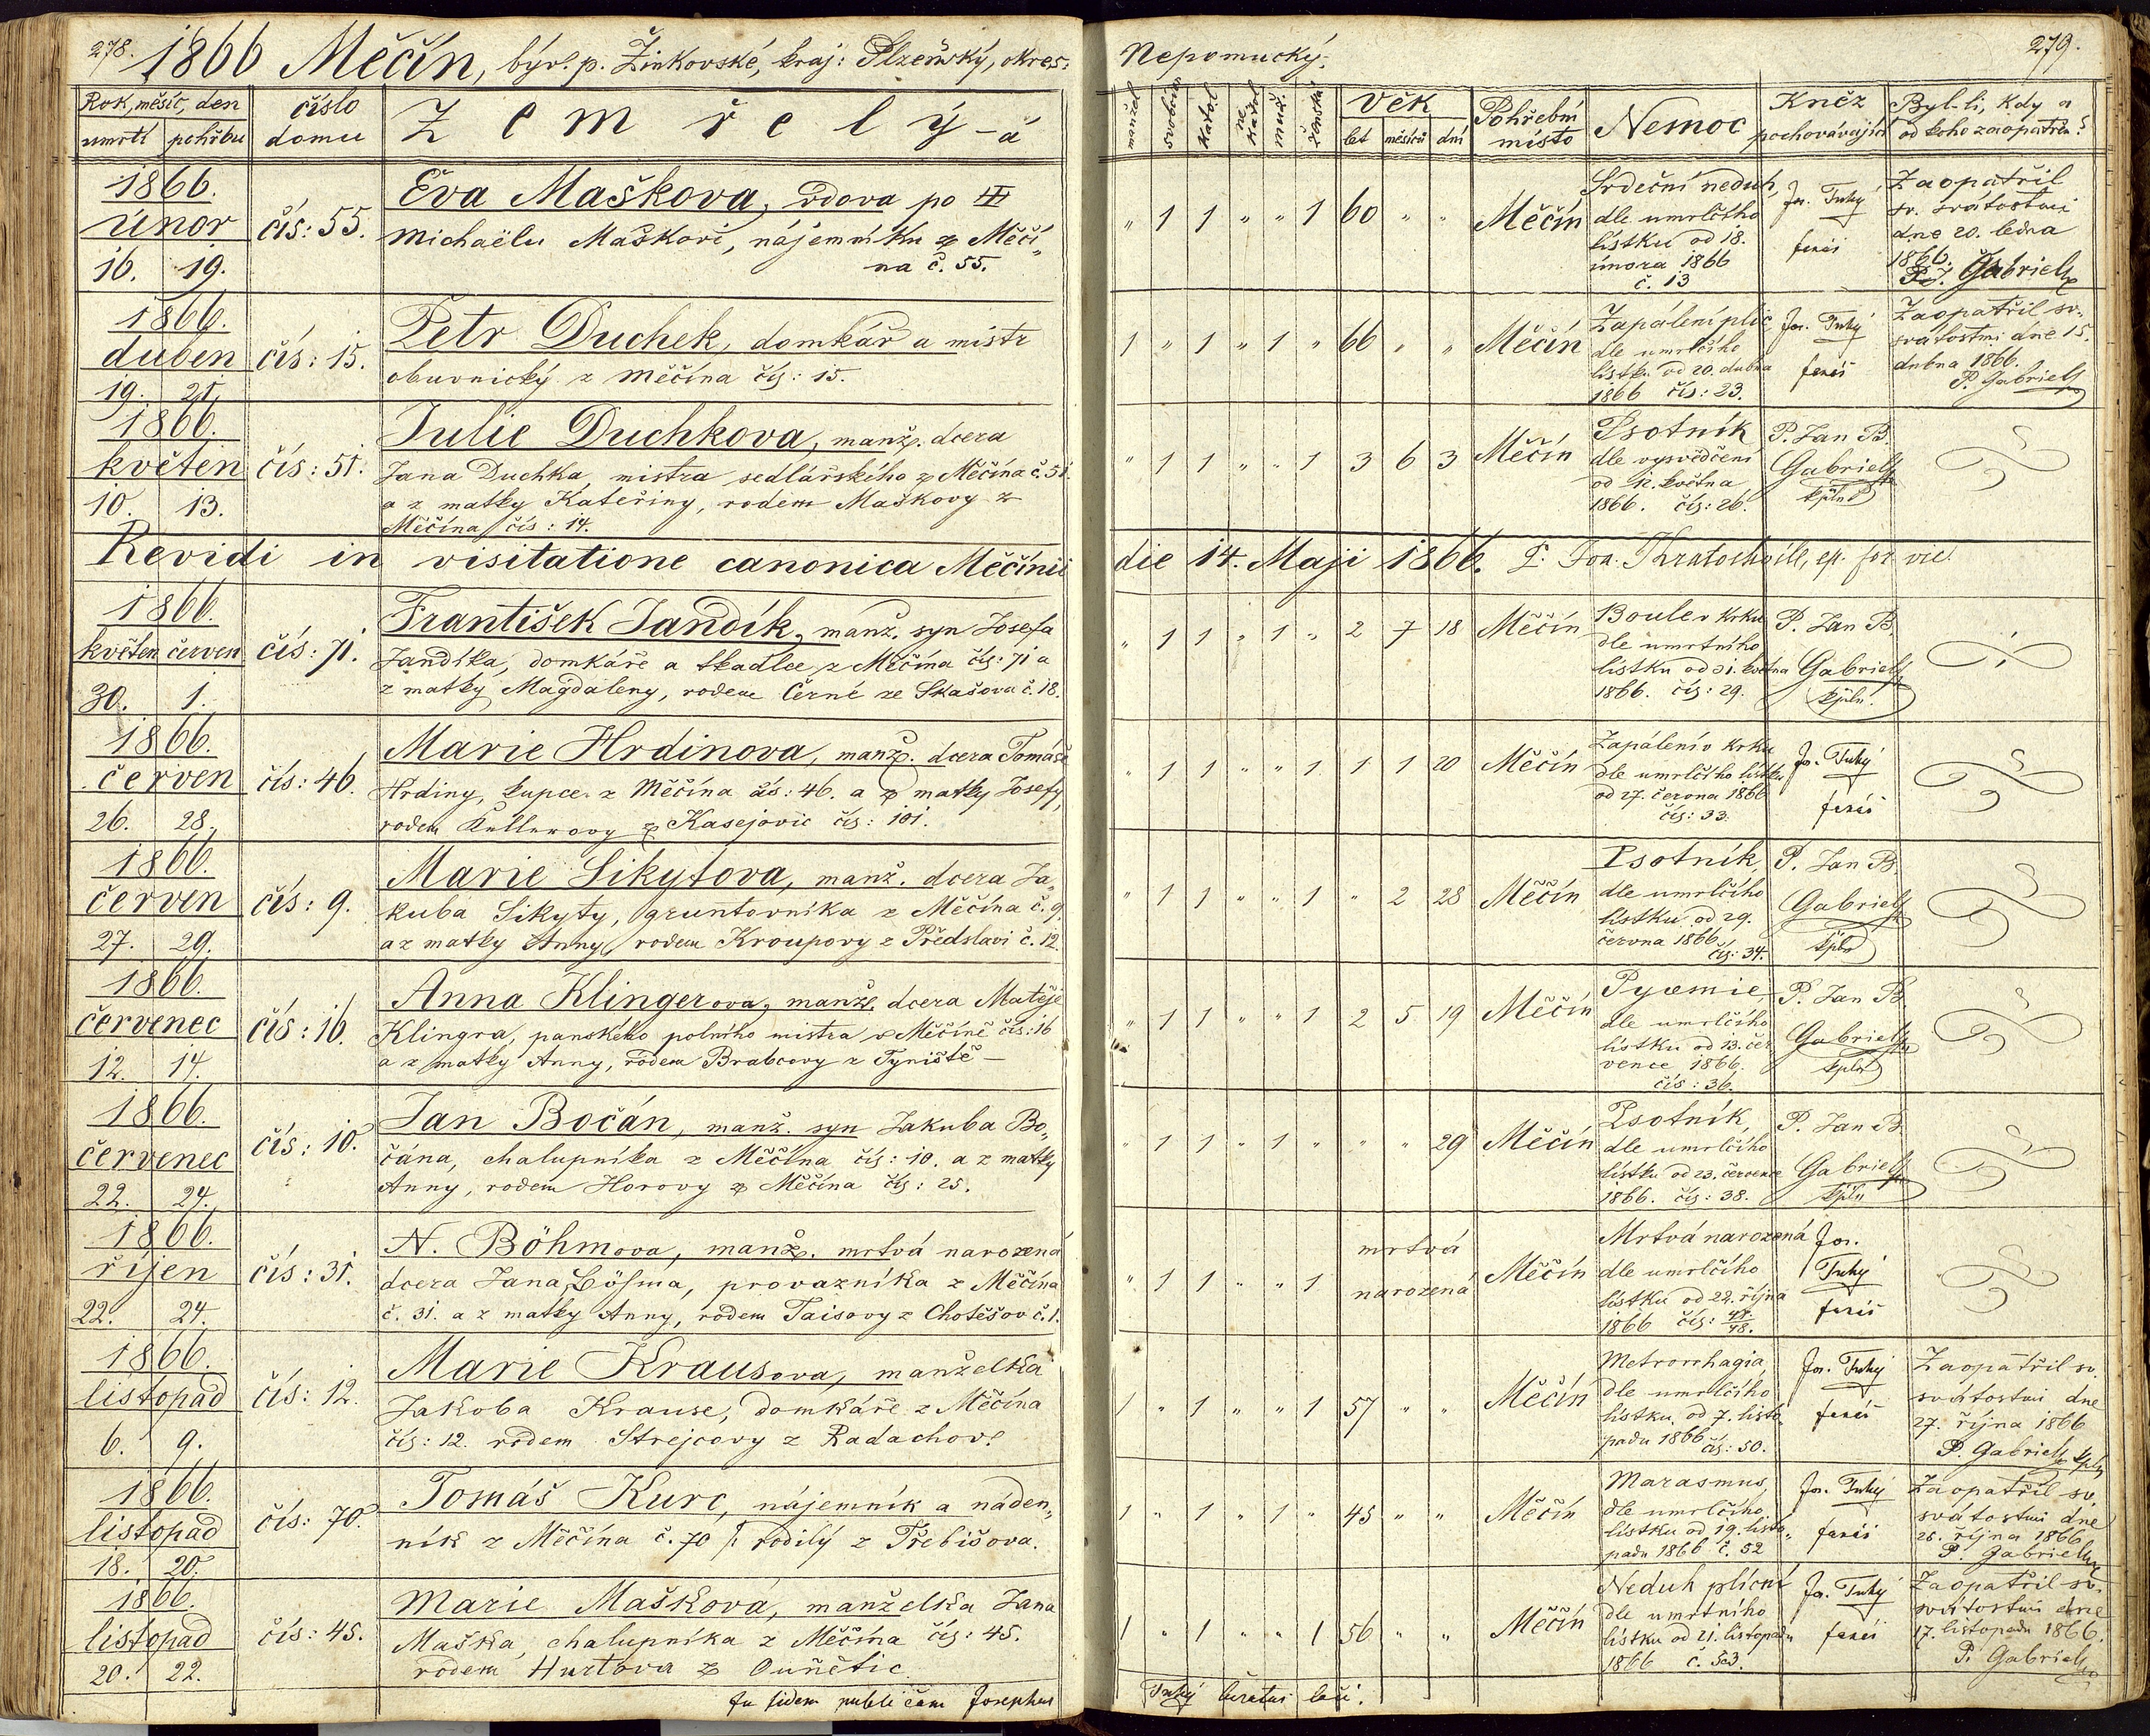 278. 1866 Měčín, býv. p. Žinkovské, kraj: Plzeňský, okres:
Rok, měsíc, den
umrtí pohřbu
číslo
domu
Zemřelý-á
1866.
únor
16. 19.
čís: 55.
Eva Maškova, vdova po
Michaëlu Maškovi, nájemníku z Měčí„
na č. 55.
1866.
duben
19. 21.
čís: 15.
Petr Duchek, domkář a mistr
obuvnický z Měčína čís: 15.
1866.
květen
10. 13.
čís: 51.
Julie Duchkova, manž. dcera
Jana Duchka, mistra sedlářského z Měčína č. 51.
a z matky Kateřiny, rodem Maškovy z
Měčína čís: 14.
Revidi in visitatione canonica Měčínii
1866.
květen červen
30. 1.
čís: 71.
František Jandík, manž. syn Josefa
Jandíka, domkáře a tkadlce z Měčína čís: 71 a
z matky Magdaleny, rodem Černé ze Skašova č. 18.
1866.
červen
26. 28.
čís: 46.
Marie Hrdinova, manž. dcera Tomáše
Hrdiny, kupce z Měčína čís: 46. a z matky Josefy,
rodem z Kasejovic čís: 101.
1866.
červen
27. 29.
čís: 9.
Marie Sikytova, manž. dcera Ja„
kuba Sikyty, gruntovníka z Měčína č. 9
a z matky Anny, rodem Kroupovy z Předslavi č. 12.
1866.
červenec
12. 14.
čís: 16.
Anna Klingerova, manž. dcera Matěje
Klingra, panského polního mistra v Měčíně čís: 16
a z matky Anny, rodem Brabcovy z Tyniště —
1866.
červenec
22. 24.
čís: 10.
Jan Bočán, manž. syn Jakuba Bo„
čána, chalupníka z Měčína čís: 10. a z matky
Anny, rodem Horovy z Měčína čís: 25.
1866.
říjen
22. 24.
čís: 31.
N. Böhmova, manž. mrtvá narozená
dcera Jana Böhma, provazníka z Měčína
č. 31. a z matky Anny, rodem Taisovy z Chotěšov č. 1.
1866.
listopad
6. 9.
čís: 12.
Marie Krausova, manželka
Jakoba Krause, domkáře z Měčína
čís: 12. rodem Strejcovy z Radachov.
1866.
listopad
18. 20.
čís: 70.
Tomáš Kurc, nájemník a náden„
ník z Měčína č. 70 rodilý z Třebišova.
1866.
listopad
20. 22.
čís: 45.
Marie Mašková, manželka Jana
Maška, chalupníka z Měčína čís: 45.
rodem Hurtova z Ouňětic.
fidem publicam Josephus
Nepomucký.
279.
manžel
svobodn
katol
ne katol
muž.
ženská
Věk
let měsíců dní
Pohřební
místo
Nemoc
Kněz
pochovávající
Byl-li, kdy a
od koho zaopatřen?
„ 1 1 „ „ 1 60 „ „ Měčín
Srdeční neduh,
dle umrlčího
lístku od 18.
února 1866
č. 13
Jos. Tuhý
farář
Zaopatřil
sv. svátostmi
dne 20. ledna
1866.
P. J. Gabriel
1 „ 1 „ 1 „ 66 „ „ Měčín
Zapálení plic
dle umrlčího
lístku od 20. dubna
1866 čís: 23.
Jos. Tuhý
farář
Zaopatřil sv.
svátostmi dne 15.
dubna 1866.
P. Gabriel
„ 1 1 „ „ 1 3 6 3 Měčín
Psotník
dle vysvědčení
od 12. května
1866. čís: 26.
P. Jan B.
Gabriel
kpln
die 14. Maji 1866.
„ 1 1 „ 1 „ 2 7 18 Měčín
Boule v krku
dle umrtního
lístku od 31. května
1866. čís: 29.
P. Jan B.
Gabriel
kpln.
„ 1 1 „ „ 1 1 1 20 Měčín
Zapálení v krku
dle umrlčího lístku
od 27. června 1866
čís: 33.
Jos. Tuhý
farář
„ 1 1 „ „ 1 „ 2 28 Měčín
Psotník,
dle umrlčího
lístku od 29.
června 1866
čís: 34.
P. Jan B.
Gabriel
kpln
„ 1 1 „ „ 1 2 5 19 Měčín
Pyæmie,
dle umrlčího
lístku od 13. čer
vence 1866.
čís: 36.
P. Jan B.
Gabriel
kpln
„ 1 1 „ 1 „ „ „ 29 Měčín
Psotník,
dle umrlčího
lístku od 23. července
1866. čís: 38.
P. Jan B.
Gabriel
kpln
„ 1 1 „ „ 1 mrtvá
narozená
Měčín
Mrtvá narozená
dle umrlčího
lístku od 22. října
1866 čís: 48.
Jos.
Tuhý
farář
1 „ 1 „ „ 1 57 „ „ Měčín
Metrorrhagia,
dle umrlčího
lístku od 7. listo
padu 1866 čís: 50.
Jos. Tuhý
farář
Zaopatřil sv.
svátostmi dne
27. října 1866
P. Gabriel kpln
1 „ 1 „ 1 „ 45 „ „ Měčín
Marasmus,
dle umrlčího
lístku od 19. listo„
padu 1866 č. 52
Jos. Tuhý
farář
Zaopatřil sv.
svátostmi dne
28. října 1866
P. Gabriel
1 „ 1 „ „ 1 56 „ „ Měčín
Neduh plicní
dle umrtního
lístku od 21. listopadu
1866 č. 53.
Jos. Tuhý
farář
Zaopatřil sv.
svátostmi dne
17. listopadu 1866.
P. Gabriel
Tuhý curatus loci.